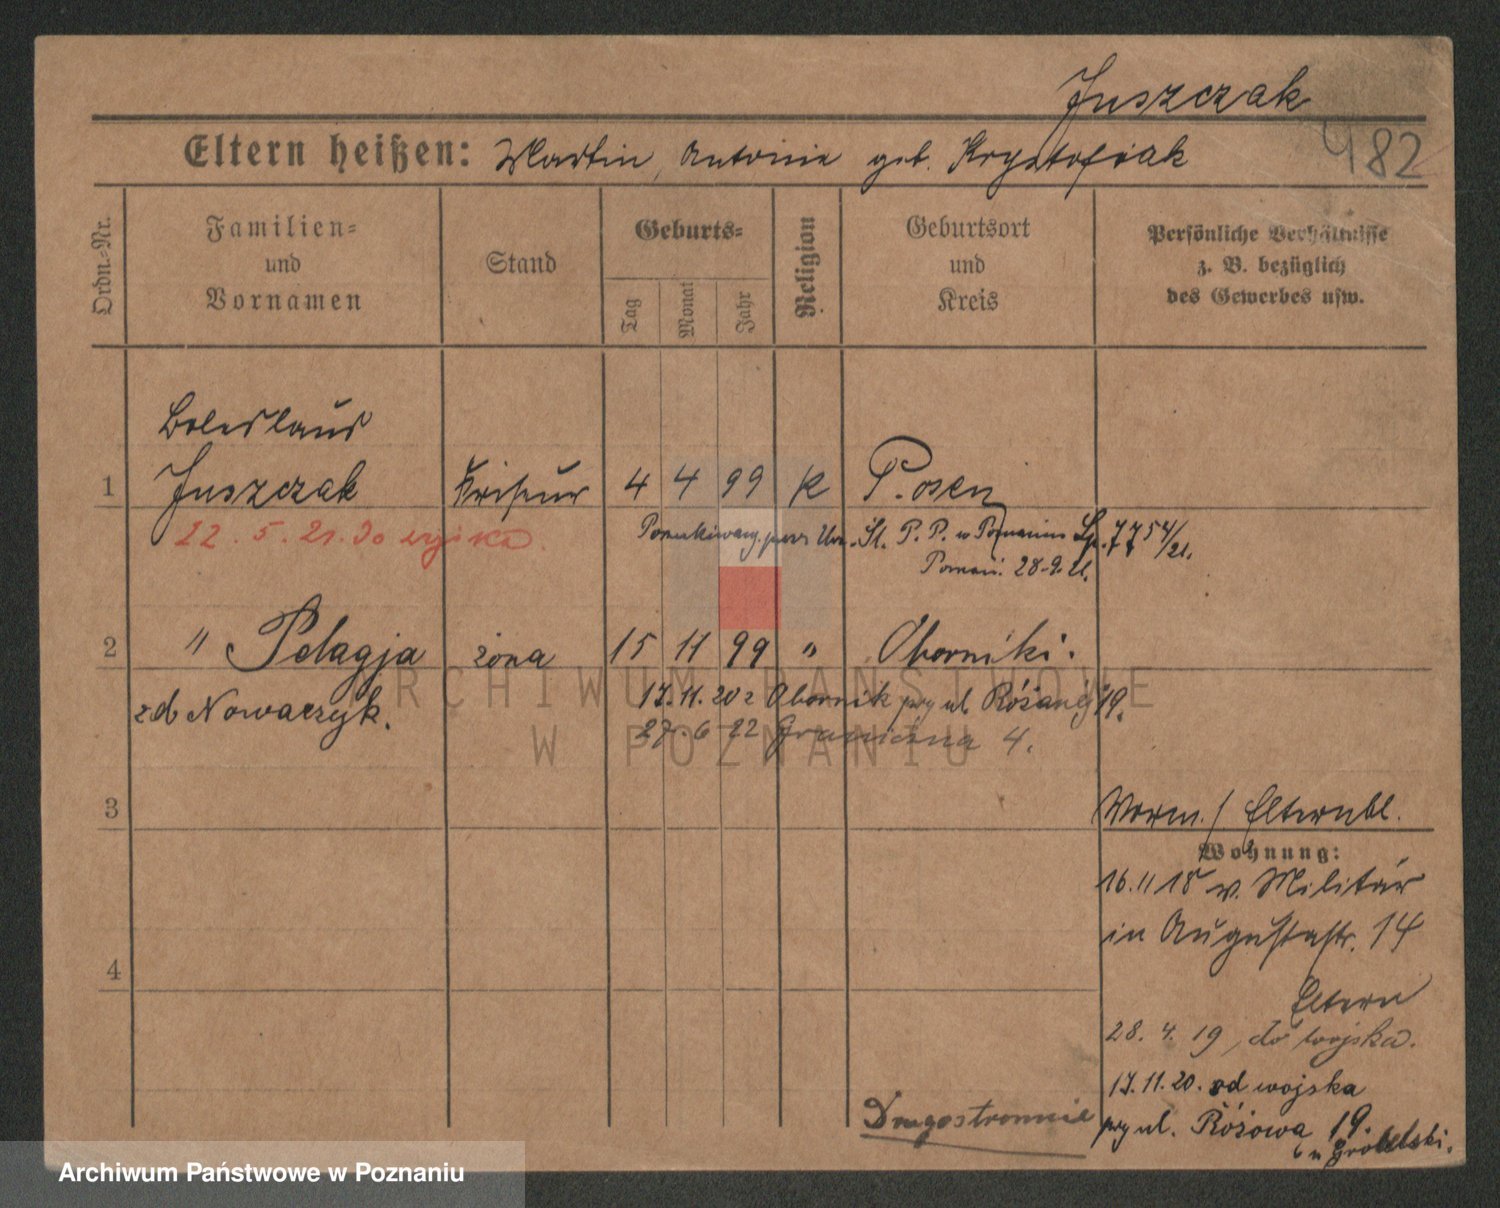 Juszczak
482
Eltern heißen: Martin, Antonie geb. Krystofiak
Ordn.-Nr.
Familien-
und
Vornamen
Stand
Geburts-
Tag
Monat
Jahr
Religion
Geburtsort
und
Kreis
Persönliche Verhältnisse
z. B. bezüglich
des Gewerbes usw.
Boleslaus
1 Juszczak Friseur 4 4 99 K Posen
22. 5. 21. Do wojska.
Poszukiwany przez Urz. Śl. P. P. w Poznaniu Lp. 7754/21.
Poznań. 28.9.21.
2 " Pelagja żona 15 11 99 " Oborniki.
zd Nowaczyk.
17.11.20 z Obornik przy ul. Różanej 19.
27. 6 22 Graniczna 4.
3
Vorm. / Elternbl.
Wohnung:
16.11 18 v. Militär
in Augustastr. 14
4
Eltern
28. 4. 19, do wojska.
17.11.20. od wojska
Drugostronnie
przy ul. Różowa 19.
u Grobelski.
ARCHIWUM PAŃSTWOWE
W POZNANIU
Archiwum Państwowe w Poznaniu